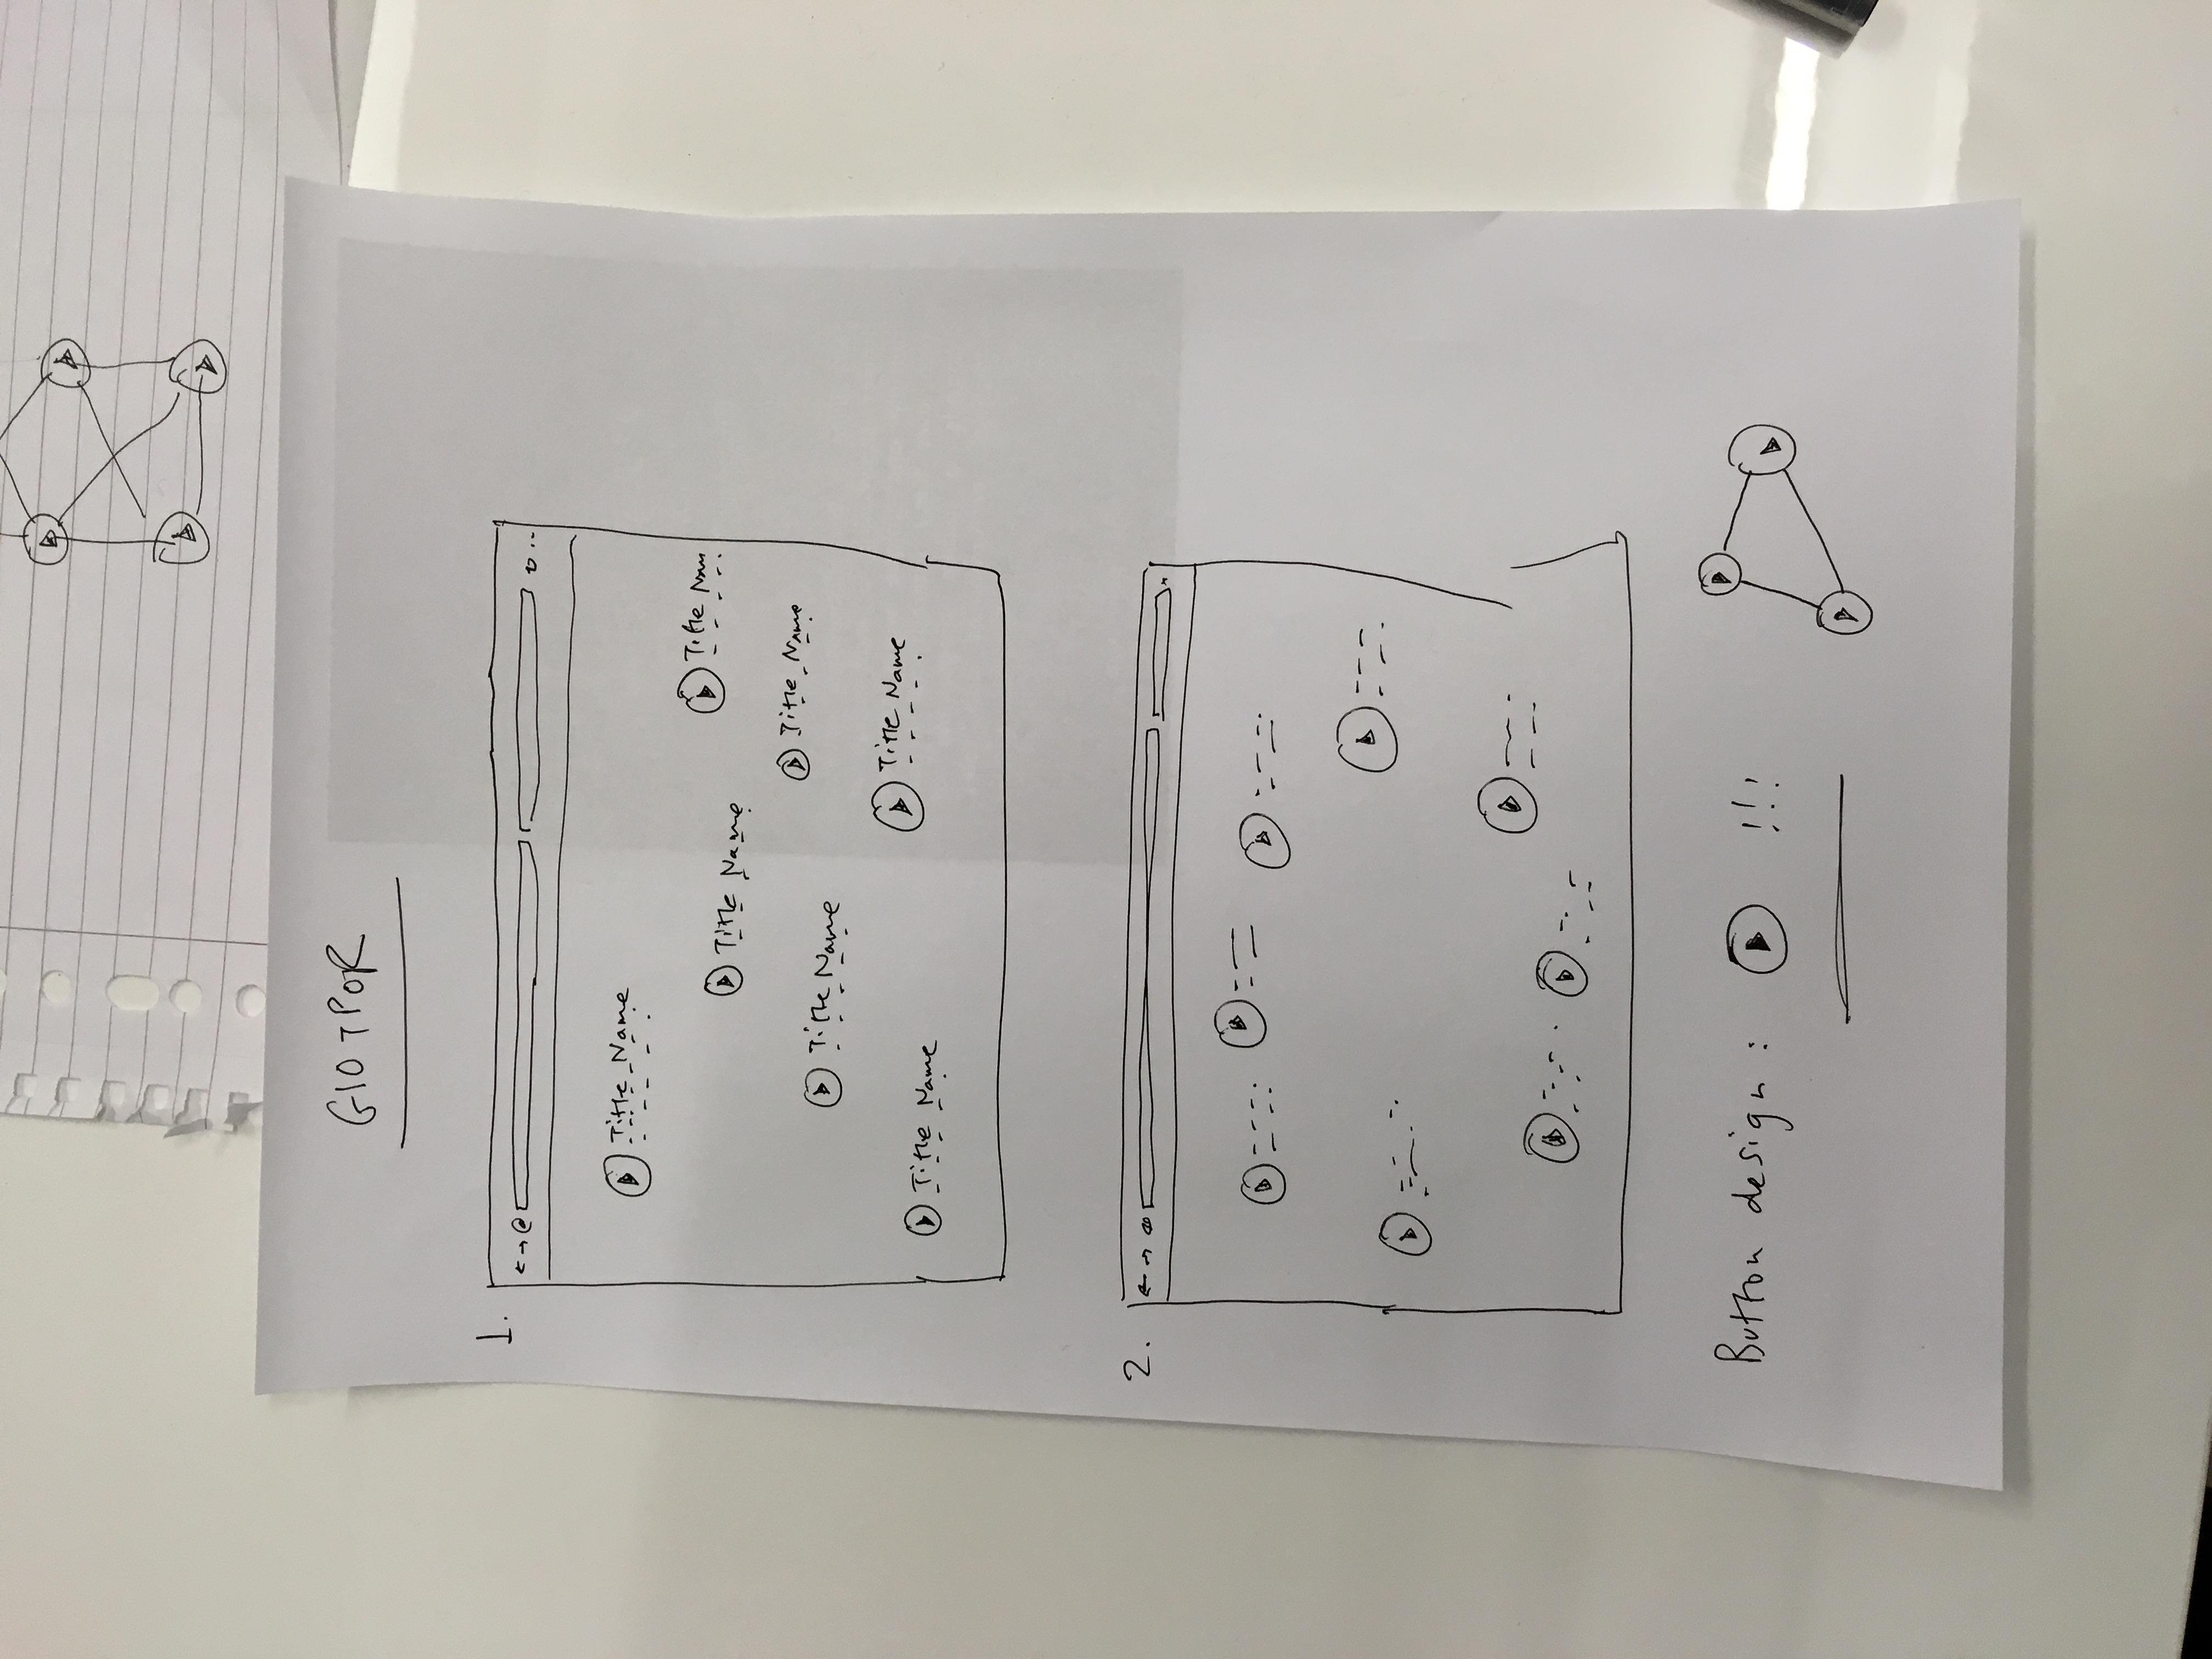 GIOTPOR
1.
Title Name
Title Nam
Title Name
Title Name
Title Name
Title Name
Title Name
2.
Button design : !!!